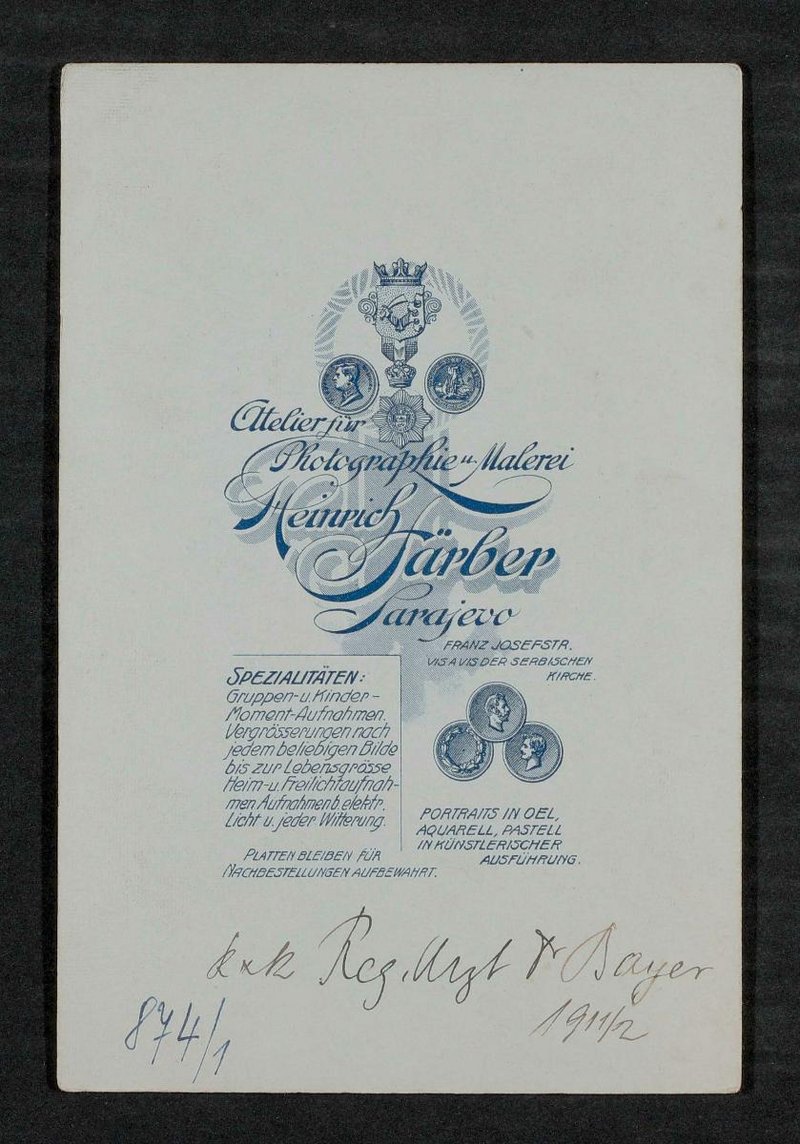 Atelier für
Photographie u. Malerei
Heinrich
Färber
Sarajevo
FRANZ JOSEFSTR.
VIS A VIS DER SERBISCHEN
KIRCHE.
SPEZIALITÄTEN:
Gruppen- u. Kinder-
Moment-Aufnahmen.
Vergrösserungen nach
jedem beliebigen Bilde
bis zur Lebensgrösse
Heim- u. Freilichtaufnah-
men Aufnahmen b. elektr.
Licht u. jeder Witterung.
PORTRAITS IN OEL,
AQUARELL, PASTELL
IN KÜNSTLERISCHER
AUSFÜHRUNG.
PLATTEN BLEIBEN FÜR
NACHBESTELLUNGEN AUFBEWAHRT.
k u k Reg. Arzt Dr Bayer
1911/2
874/1